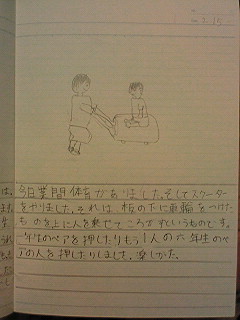 2.15
今日業間体育がありました。そしてスクーター
をやりました。それは、板の下に車輪をつけた
ものを上に人を乗せてころがすというものです。
一年生のペアを押したりもう1人の六年生のペ
アの人を押したりしました。楽しかた。